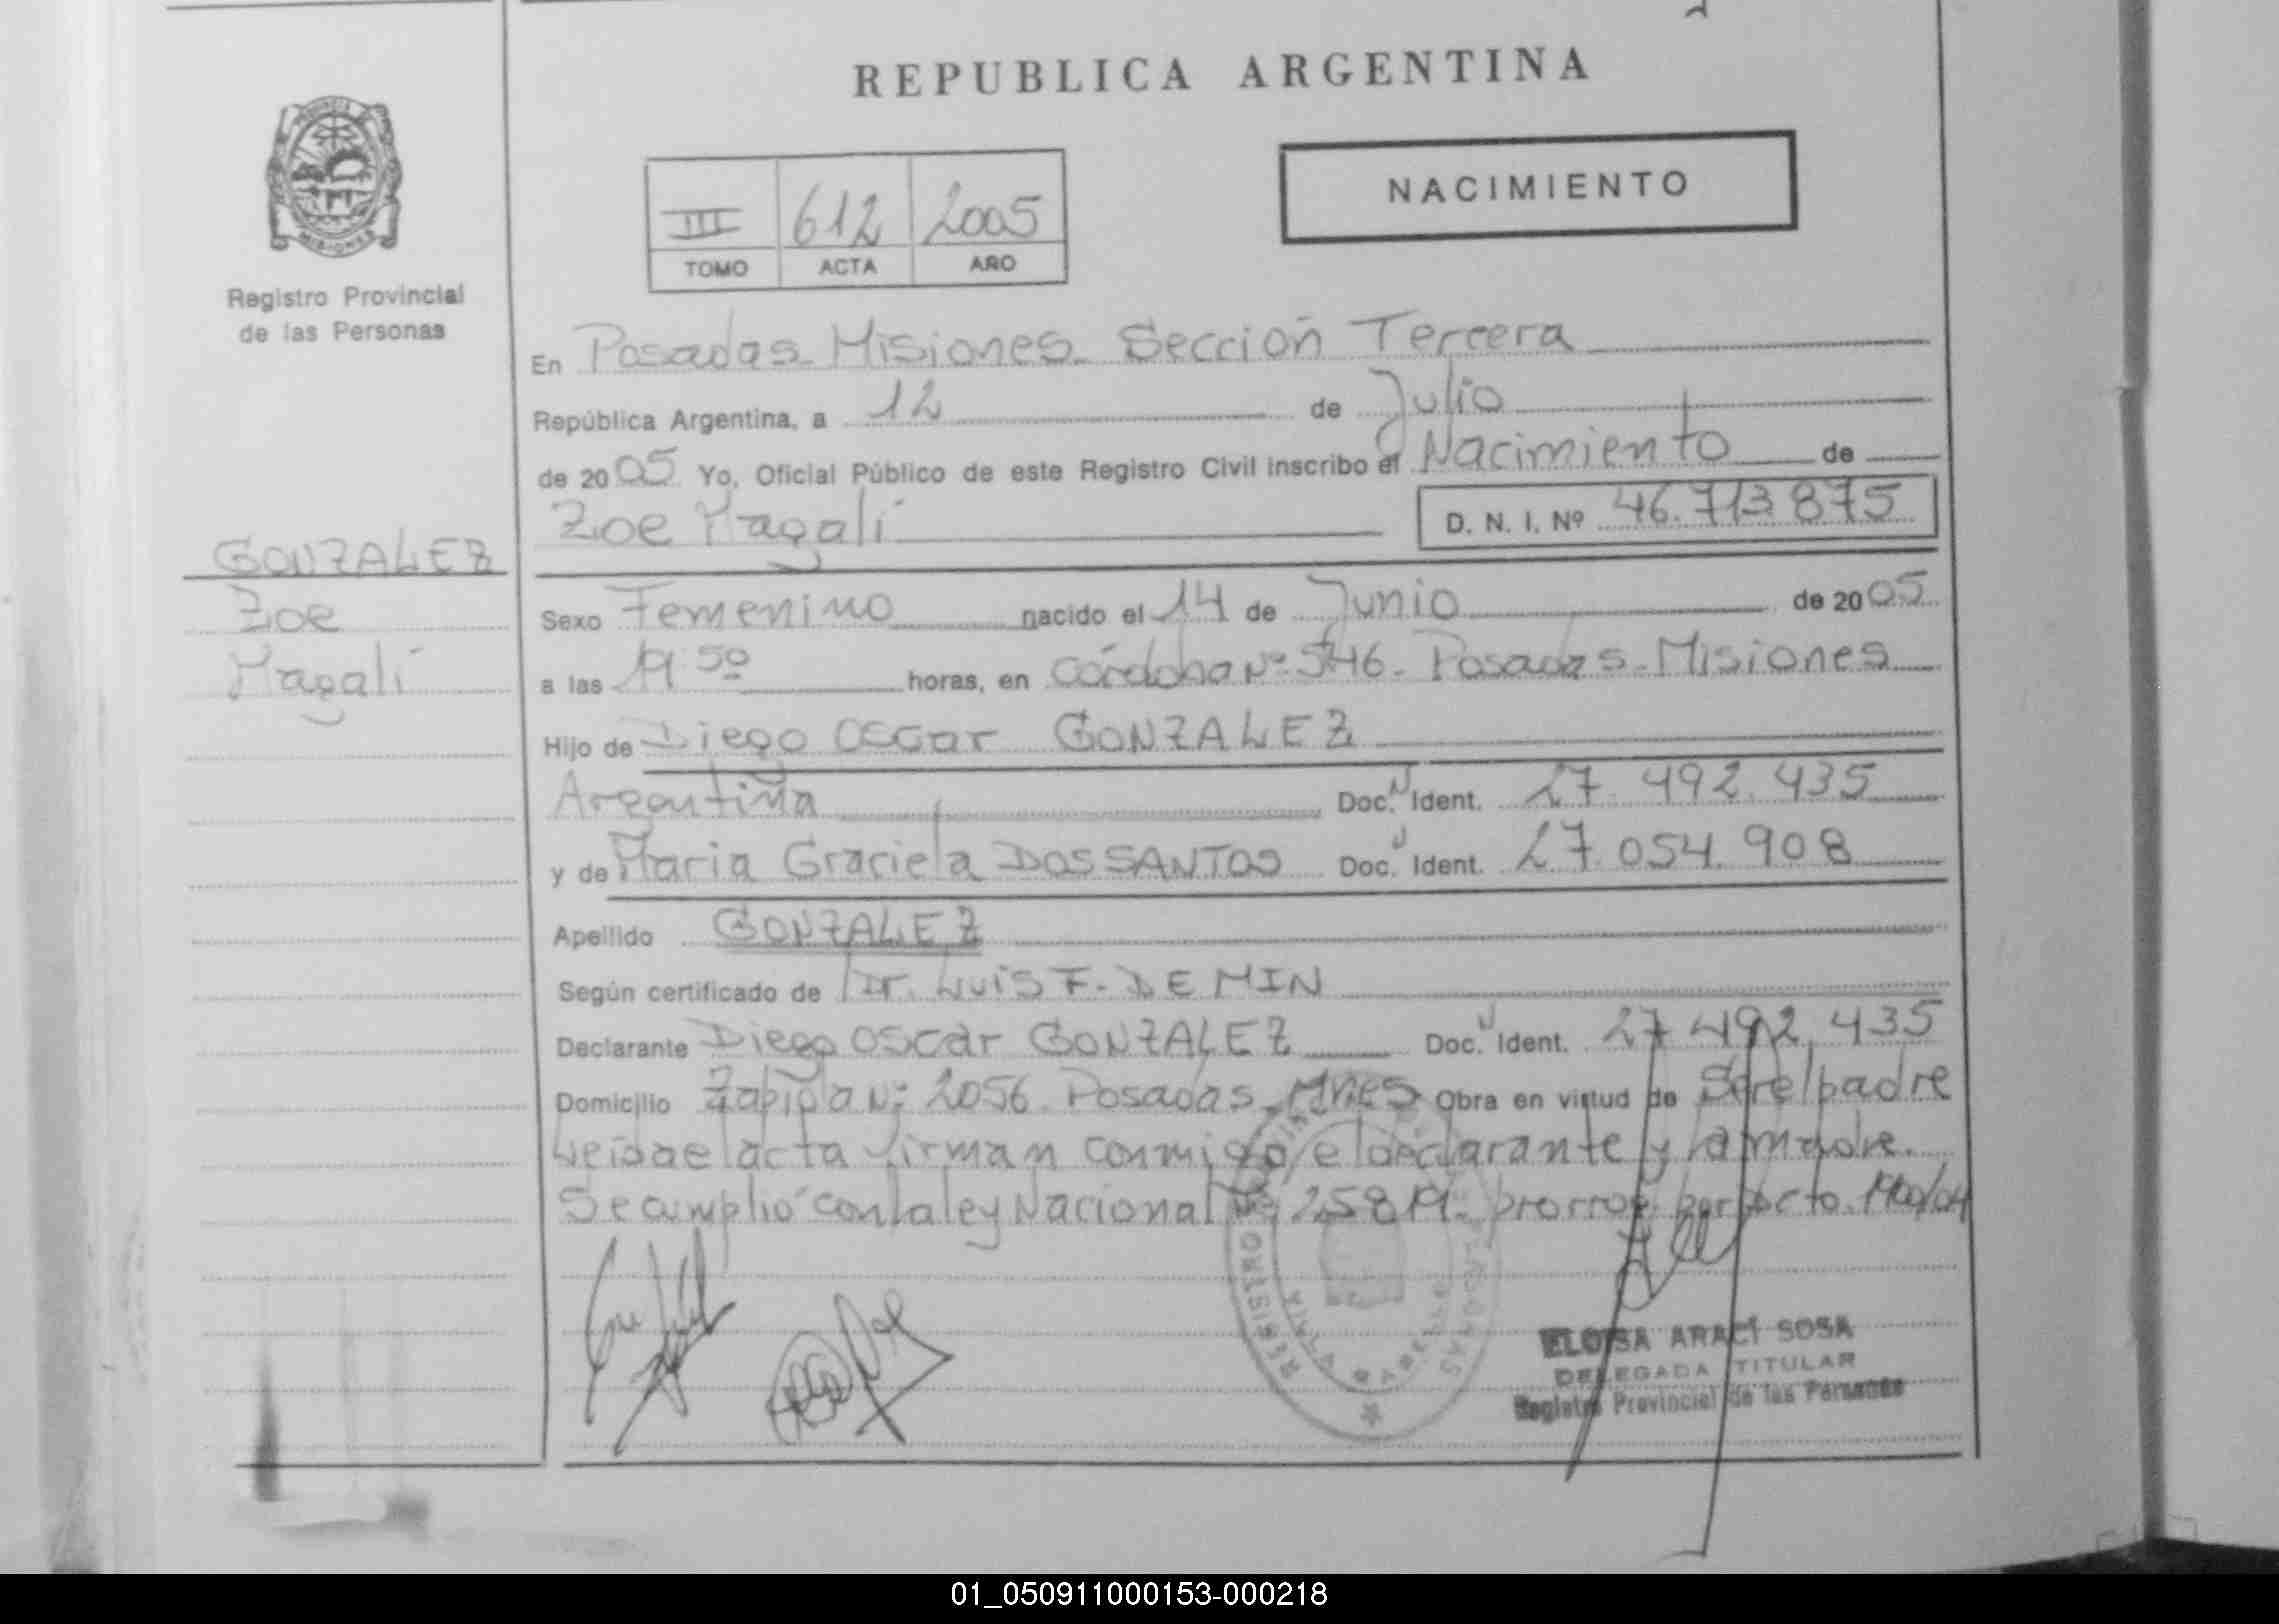 REPUBLICA ARGENTINA
NACIMIENTO
III 612 2005
TOMO ACTA AÑO
MISIONES
Registro Provincial
de las Personas
GONZALEZ
Zoe
Magalí
En Posadas Misiones Sección Tercera
República Argentina, a 12 de Julio
de 2005 Yo, Oficial Público de este Registro Civil inscribo el Nacimiento de
Zoe Magalí D. N. I. Nº 46.713.875
Sexo Femenino nacido el 14 de Junio de 2005
a las 19:50 horas, en Córdoba Nº 546 - Posadas - Misiones
Hijo de Diego Oscar GONZALEZ
Argentina Doc. Ident. 27.492.435
y de Maria Graciela DOS SANTOS Doc. Ident. 27.054.908
Apellido GONZALEZ
Según certificado de Dr. LUIS F. DE MIN
Declarante Diego Oscar GONZALEZ Doc. Ident. 27.492.435
Domicilio Zapiola Nº 2056 Posadas, Mnes Obra en virtud de Ser el padre
Leida el acta firman conmigo el declarante y la madre.
Se cumplió con la ley Nacional Nº 25819 - prorrog. por Dcto.
ELOISA ARACI SOSA
DELEGADA TITULAR
Registro Provincial de las Personas
REGISTRO
01_050911000153-000218